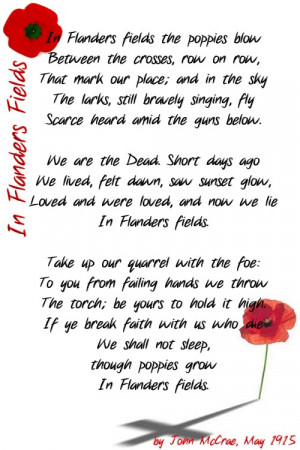 In Flanders Fields
In Flanders fields the poppies blow
Between the crosses, row on row,
That mark our place; and in the sky
The larks, still bravely singing, fly
Scarce heard amid the guns below.
We are the Dead. Short days ago
We lived, felt dawn, saw sunset glow,
Loved and were loved, and now we lie
In Flanders fields.
Take up our quarrel with the foe:
To you from failing hands we throw
The torch; be yours to hold it high.
If ye break faith with us who die
We shall not sleep,
though poppies grow
In Flanders fields.
by John McCrae, May 1915